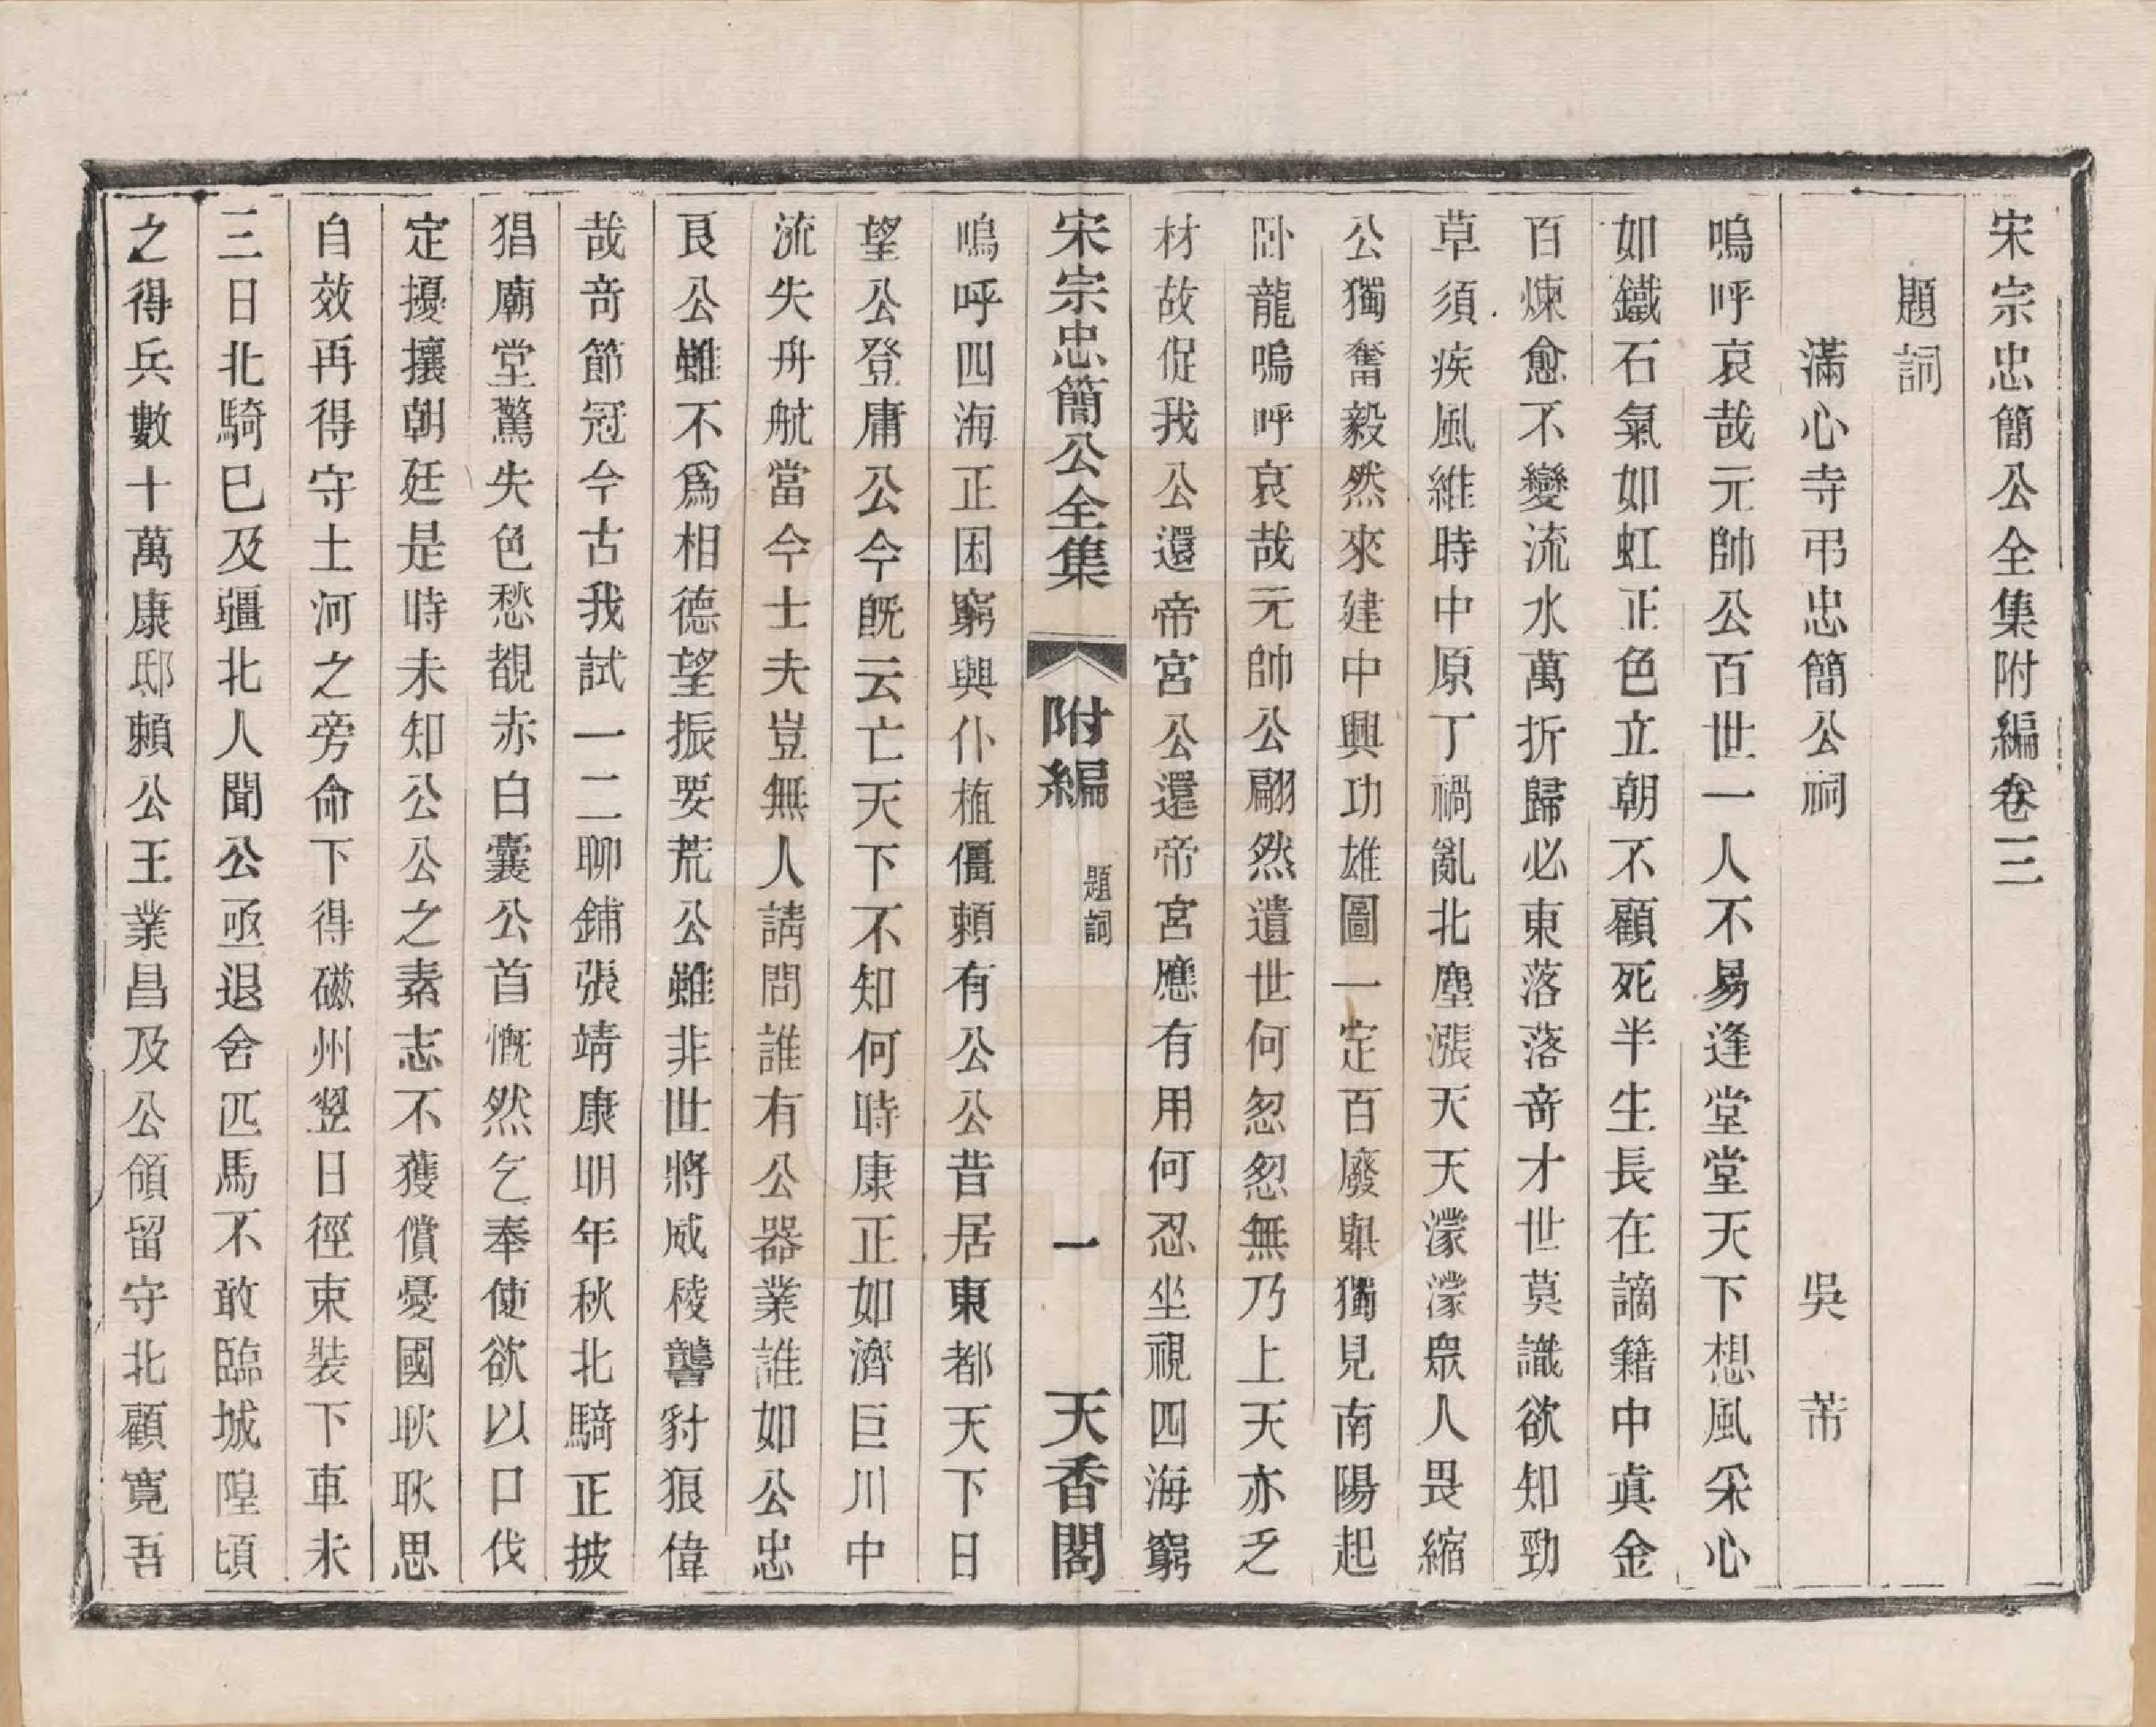 宋宗忠簡公全集附編卷三
題詞
滿心寺弔忠簡公祠 吳芾
嗚呼哀哉元帥公百世一人不易逢堂堂天下想風采心
如鐵石氣如虹正色立朝不顧死半生長在謫籍中眞金
百煉愈不變流水萬折歸必東落落奇才世莫識欲知勁
草須疾風維時中原丁禍亂北塵漲天天濛濛眾人畏縮
公獨奮毅然來建中興功雄圖一定百廢舉獨見南陽起
卧龍嗚呼哀哉元帥公翩然遺世何怱怱無乃上天亦乏
材故促我公還帝宮公還帝宮應有用何忍坐視四海窮
宋宗忠簡公全集 附編 題詞 一 天香閣
嗚呼四海正困窮興仆植僵賴有公公昔居東都天下日
望公登庸公今旣云亡天下不知何時康正如濟巨川中
流失舟航當今士夫豈無人請問誰有公器業誰如公忠
良公雖不爲相德望振要荒公雖非世將威稜讋豺狼偉
哉奇節冠今古我試一二聊鋪張靖康明年秋北騎正披
猖廟堂驚失色愁覩赤白囊公首慨然乞奉使欲以口伐
定擾攘朝廷是時未知公公之素志不獲償憂國耿耿思
自效再得守土河之旁命下得磁州翌日徑束裝下車未
三日北騎巳及疆北人聞公亟退舍匹馬不敢臨城隍頃
之得兵數十萬康邸賴公王業昌及公領留守北顧寬吾